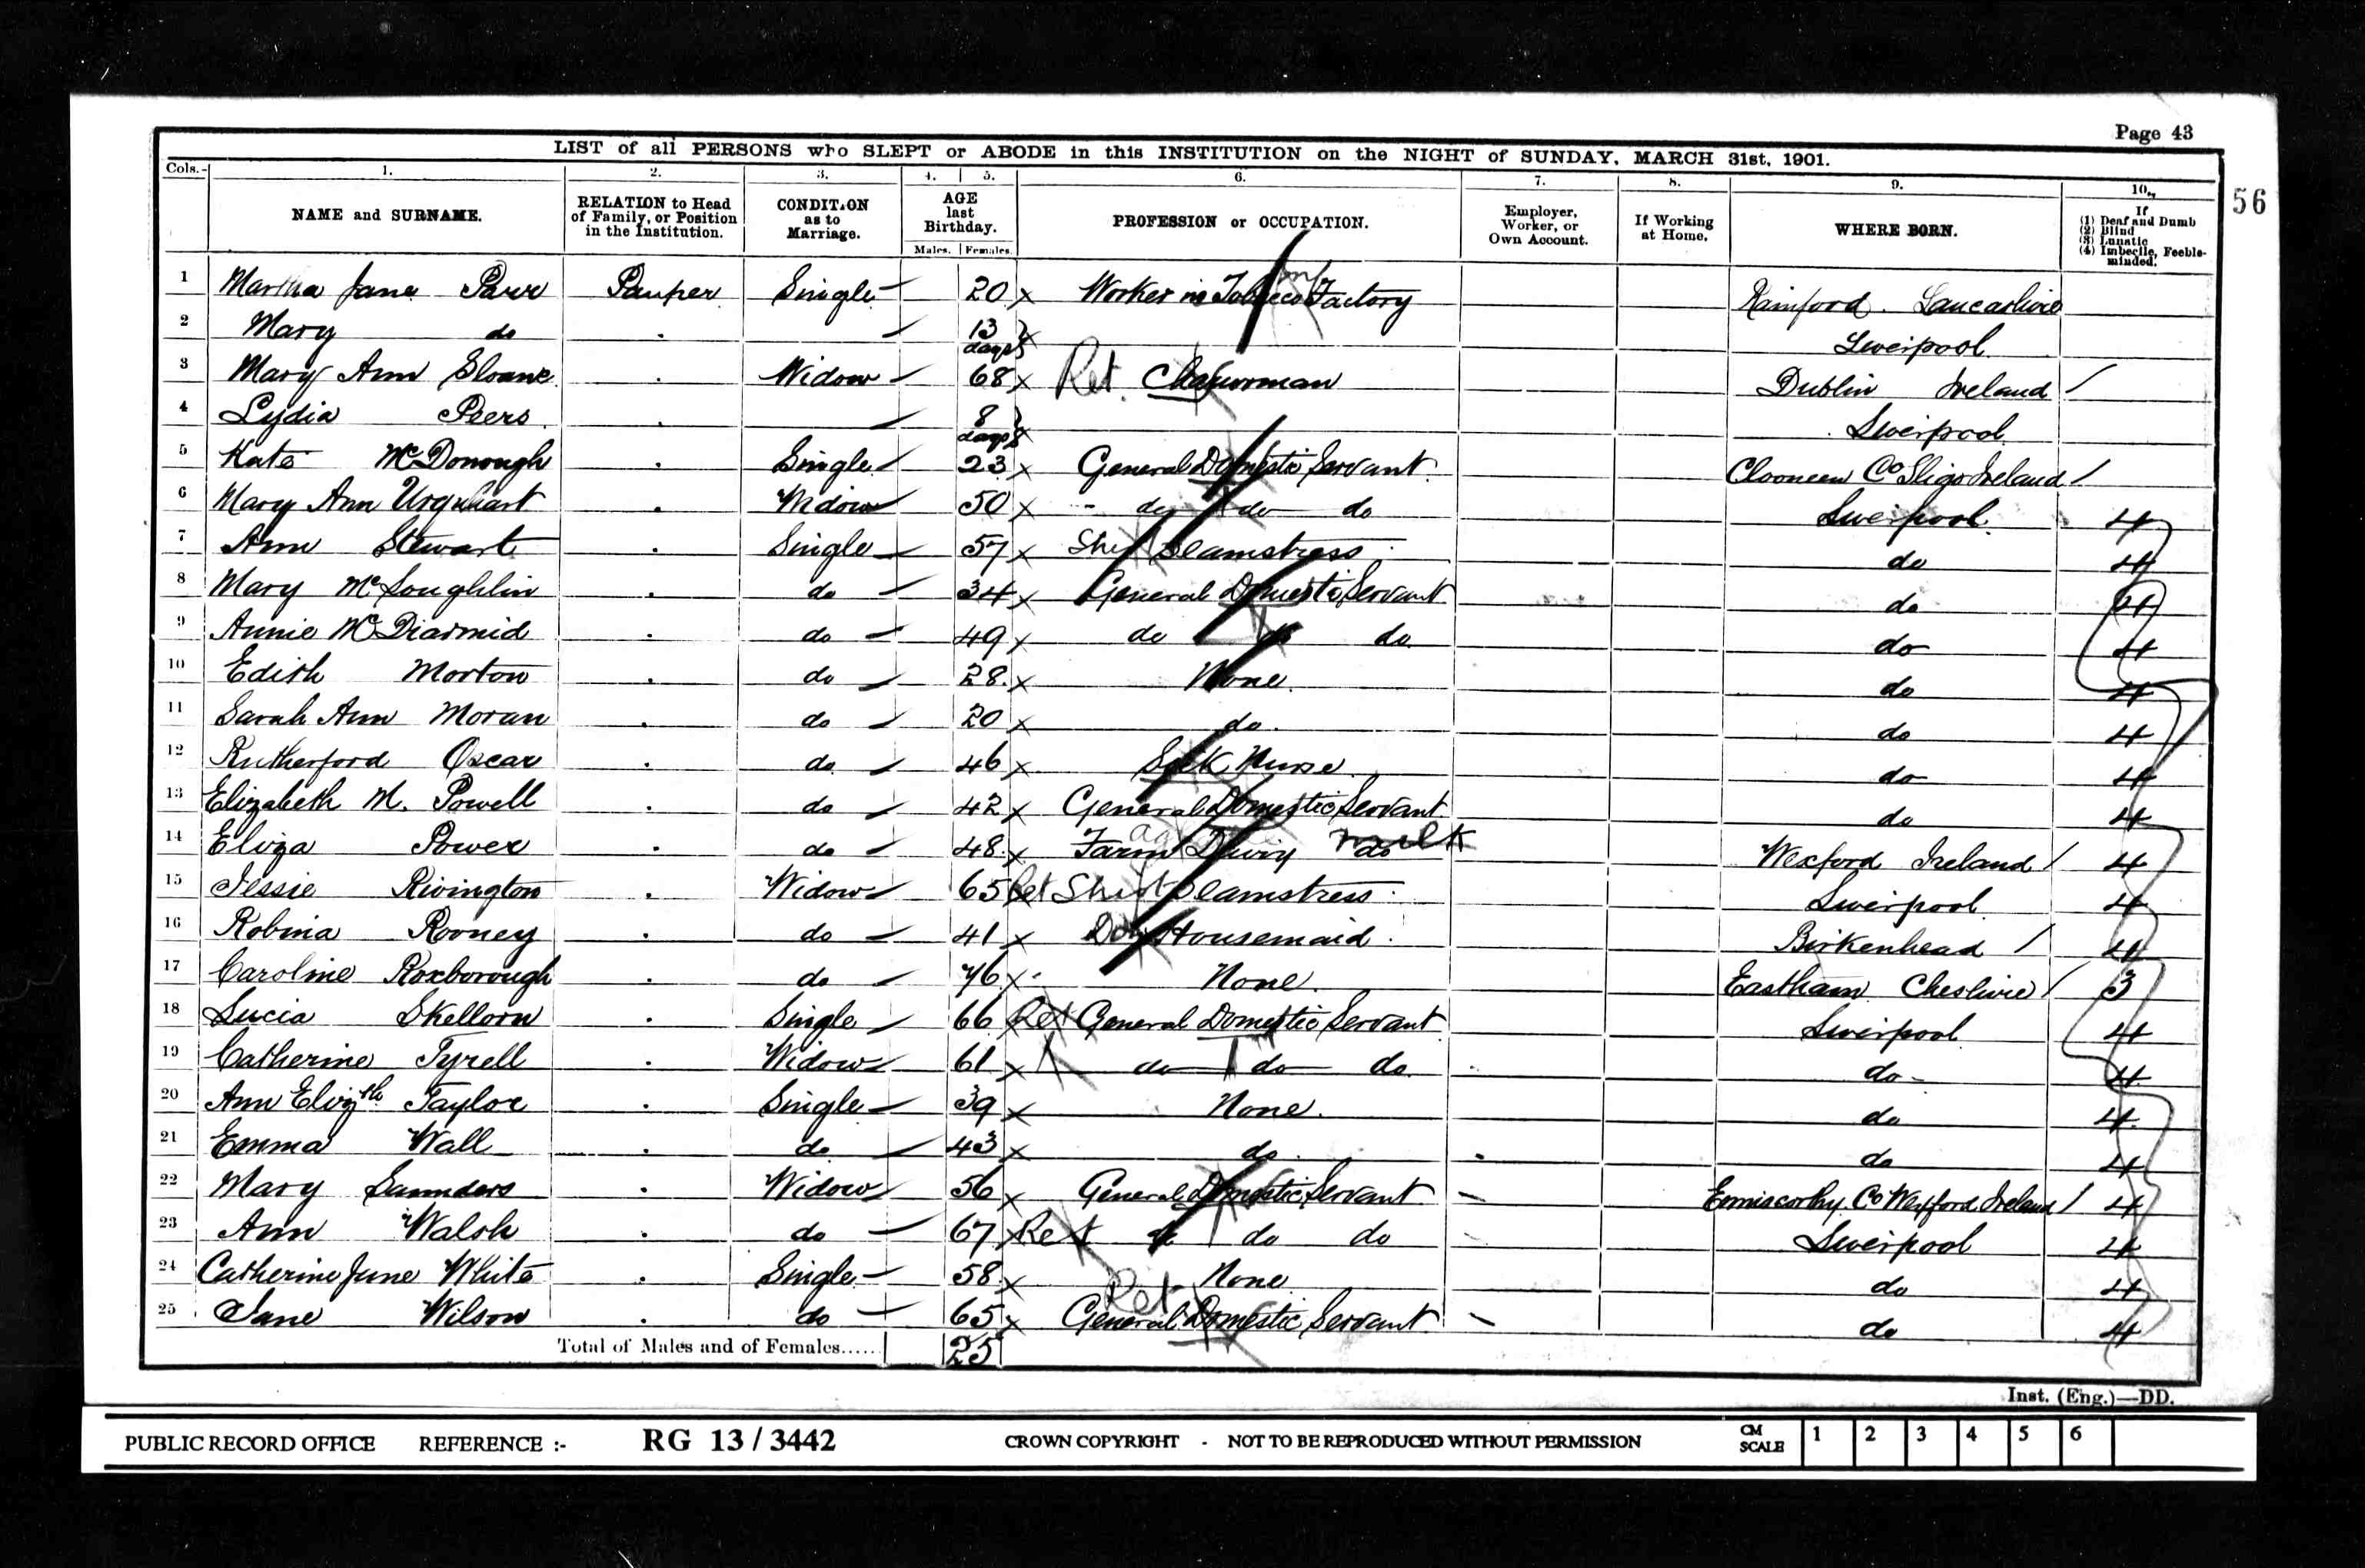 Page 43
LIST of all PERSONS who SLEPT or ABODE in this INSTITUTION on the NIGHT of SUNDAY, MARCH 31st, 1901.
56
Cols.- 1. 2. 3. 4. 5. 6. 7. 8. 9. 10.
NAME and SURNAME. RELATION to Head of Family, or Position in the Institution. CONDITION as to Marriage. AGE last Birthday. Males. Females. PROFESSION or OCCUPATION. Employer, Worker, or Own Account. If Working at Home. WHERE BORN. If (1) Deaf and Dumb (2) Blind (3) Lunatic (4) Imbecile, Feeble-minded.
1 Martha Jane Parr Pauper Single 20 x Worker in Tobacco Factory Rainford. Lancashire
2 Mary do 13 days x Liverpool
3 Mary Ann Sloane Widow 68 x Ret. Charwoman Dublin Ireland /
4 Lydia Peers 8 days x Liverpool
5 Kate McDonough Single 23 x General Domestic Servant. Clooneen Co Sligo Ireland /
6 Mary Ann Urquhart Widow 50 x do do do Liverpool 4
7 Ann Stewart Single 57 x Shirt Seamstress do 4
8 Mary McLoughlin do 34 x General Domestic Servant do 4
9 Annie McDiarmid do 49 x do do do do 4
10 Edith Morton do 28 x None. do 4
11 Sarah Ann Moran do 20 x do. do 4
12 Rutherford Oscar do 46 x Sick Nurse do 4
13 Elizabeth M. Powell do 42 x General Domestic Servant. do 4
14 Eliza Power do 48 x Farm Dairy do milk Wexford Ireland / 4
15 Jessie Rivington Widow 65 Ret Shirt Seamstress Liverpool 4
16 Robina Rooney do 41 x Dom Housemaid Birkenhead / 4
17 Caroline Roxborough do 76 x None. Eastham Cheshire / 3
18 Lucia Skellorn Single 66 Ret General Domestic Servant Liverpool 4
19 Catherine Tyrell Widow 61 x do do do do 4
20 Ann Elizth Taylor Single 39 x None. do 4
21 Emma Wall do 43 x do. do 4
22 Mary Saunders Widow 56 x General Domestic Servant Enniscorthy Co Wexford Ireland / 4
23 Ann Walsh do 67 x Ret do do do Liverpool 4
24 Catherine June White Single 58 x None do 4
25 Jane Wilson do 65 x Ret General Domestic Servant. do 4
Total of Males and of Females...... 25
Inst. (Eng.)—DD.
PUBLIC RECORD OFFICE REFERENCE :- RG 13 / 3442 CROWN COPYRIGHT - NOT TO BE REPRODUCED WITHOUT PERMISSION CM SCALE 1 2 3 4 5 6